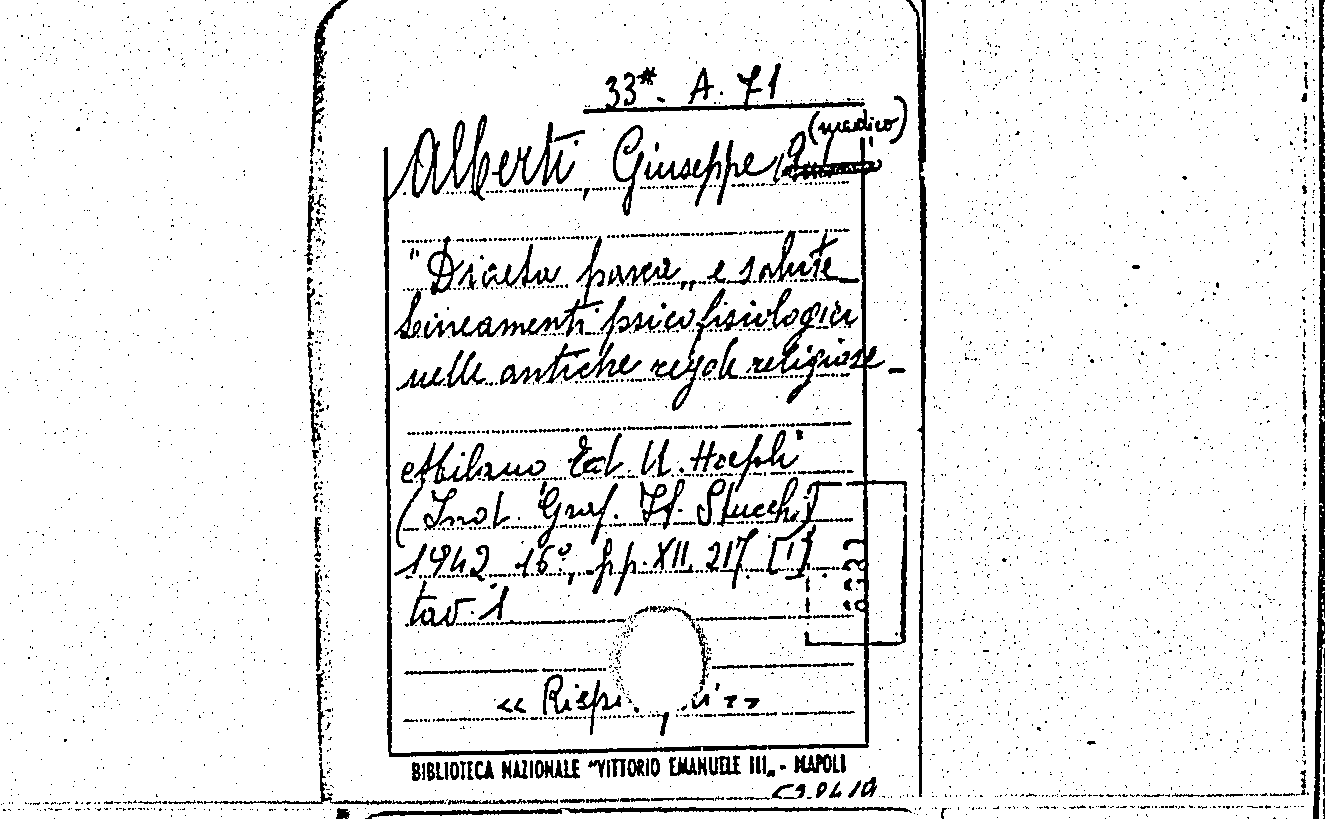 33*. A. 71
(medico)
Alberti, Giuseppe
"Diaeta parca„ e salute_
Lineamenti psicofisiologici
nelle antiche regole religiose_
Milano Ed. U. Hoepli
(Inst. Graf. Stucchi)
1942 16°, pp. XII, 217 [1]
tav. 1
BIBLIOTECA NAZIONALE "VITTORIO EMANUELE III„ - NAPOLI